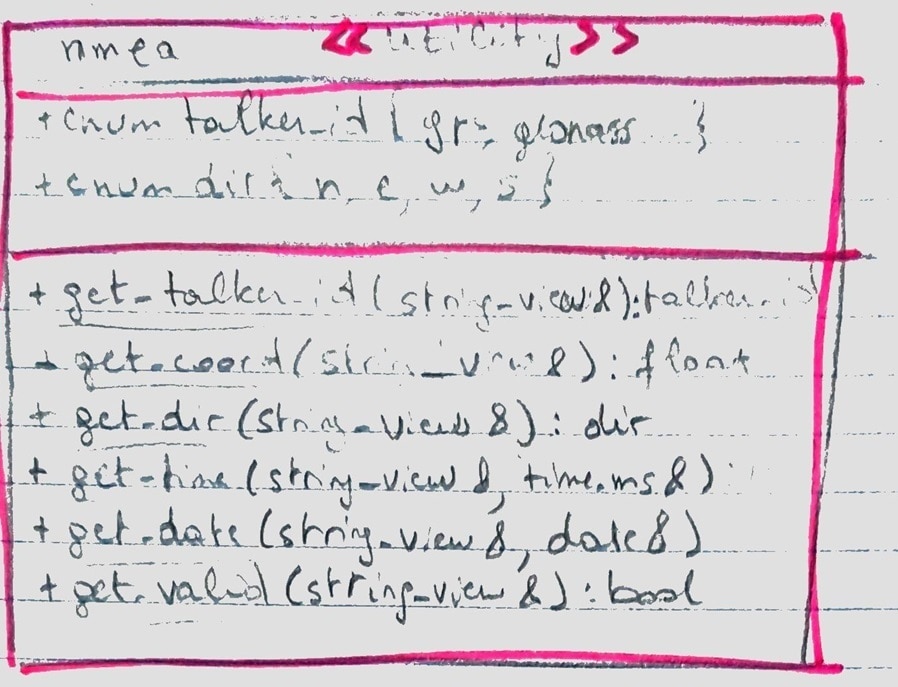 nmea << utility >>
+ enum talker_id { gps, glonass }
+ enum dir { n, e, w, s }
+ get_talker_id (string_view &): talker_id
+ get_coord (string_view &) : float
+ get_dir (string_view &) : dir
+ get_time (string_view &, time_ms &)
+ get_date (string_view &, date &)
+ get_valid (string_view &) : bool